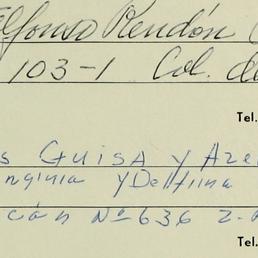 Alfonso Rendón
103-1 Col. de
Tel.
s GUISA y Aze
nginia y Delfina
ción Nº 636 2-
Tel.